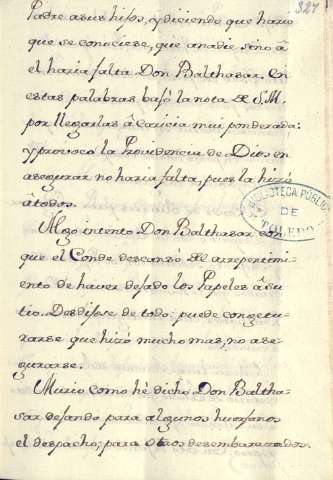 324
Padre a sus hijos, y diciendo que haria
que se conociese, que a nadie, sino â
el haria falta Don Balthasar. En
estas palabras bajó la nota de S.M.
por llegarlas â caricia mui ponderada:
y provocó la Providencia de Dios en
asegurar no haria falta, pues la hizó
âtodos.
Algo intento Don Balthasar con
que el Conde descansó del arrepentimi-
ento de haver dejado los Papeles âsu
tio. Desdijose de todo: puede congetu-
rarse que hizó mucho mas, no ase-
gurarse.
Murio como hé dicho Don Baltha-
sar dejando para algunos huerfanos
el despacho; para otros desembarazados.
BIBLIOTECA PÚBLICA
DE
TOLEDO